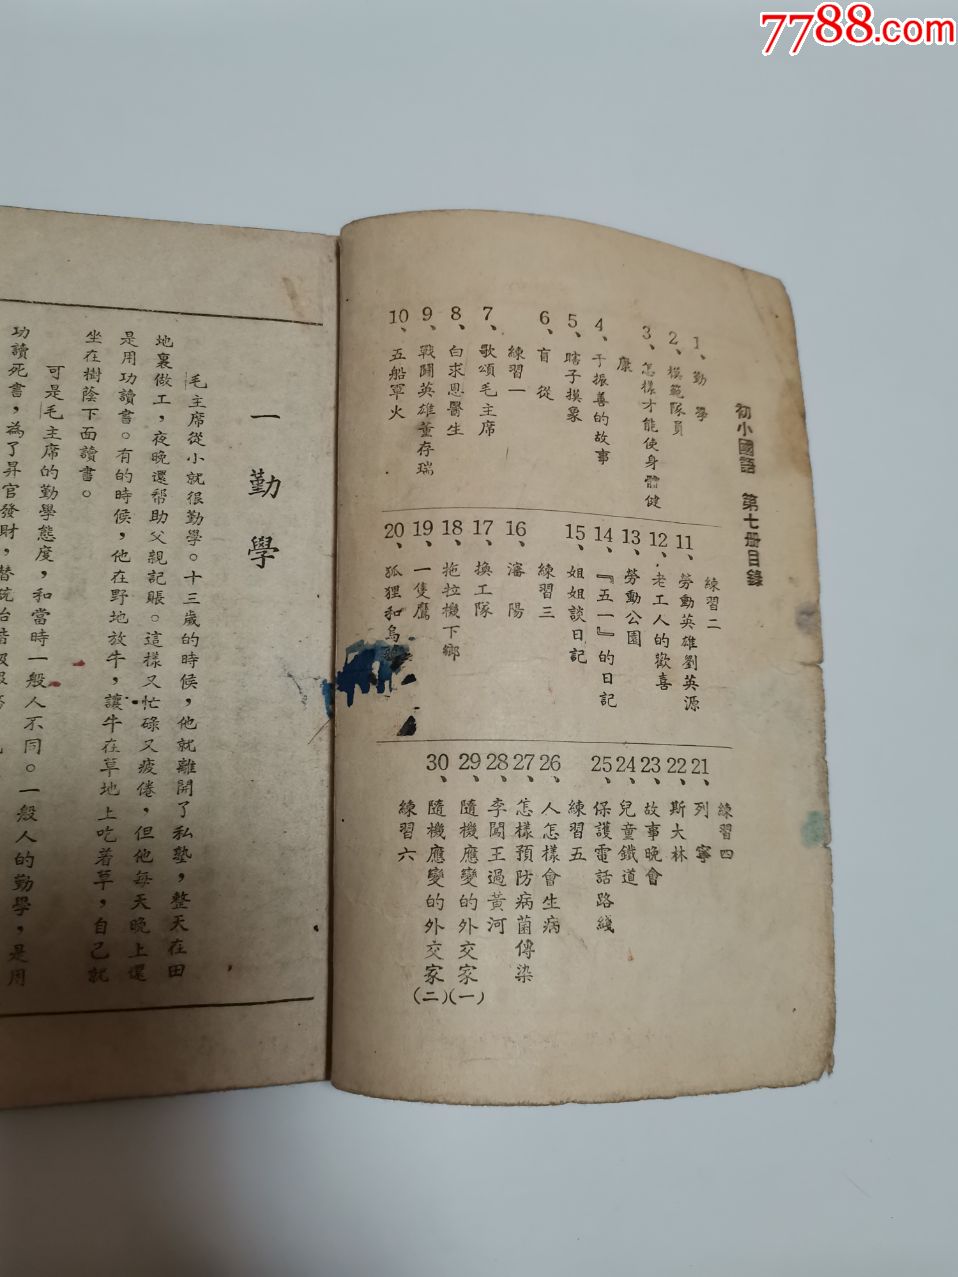 7788.com
初小國語 第七册目錄
1、勤 學
2、模範隊員
3、怎樣才能使身體健
康
4、于振善的故事
5、瞎子摸象
6、盲 從
練習一
7、歌頌毛主席
8、白求恩醫生
9、戰鬭英雄董存瑞
10、五船軍火
練習二
11、勞動英雄劉英源
12、老工人的歡喜
13、勞動公園
14、『五一』的日記
15、姐姐談日記
練習三
16、瀋 陽
17、換工隊
18、拖拉機下鄉
19、一隻鷹
20、狐狸和烏
練習四
21、列 寧
22、斯大林
23、故事晚會
24、兒童鐵道
25、保護電話路綫
練習五
26、人怎樣會生病
27、怎樣預防病菌傳染
28、李闖王過黃河
29、隨機應變的外交家(一)
30、隨機應變的外交家(二)
練習六
一 勤 學
毛主席從小就很勤學。十三歲的時候，他就離開了私塾，整天在田
地裏做工，夜晚還帮助父親記賬。這樣又忙碌又疲倦，但他每天晚上還
是用功讀書。有的時候，他在野地放牛，讓牛在草地上吃着草，自己就
坐在樹蔭下面讀書。
可是毛主席的勤學態度，和當時一般人不同。一般人的勤學，是用
功讀死書，為了昇官發財，替統治階級服務